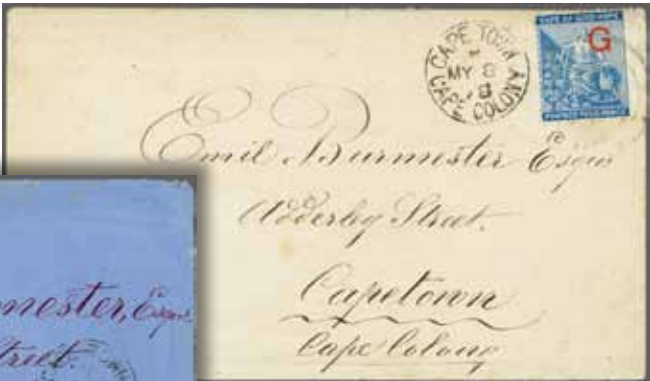 CAPE TOWN
MY 8
CAPE COLONY
G
Emil Burmester Esqre
Adderley Street.
Capetown
Cape Colony
mester, Esqre
treet.